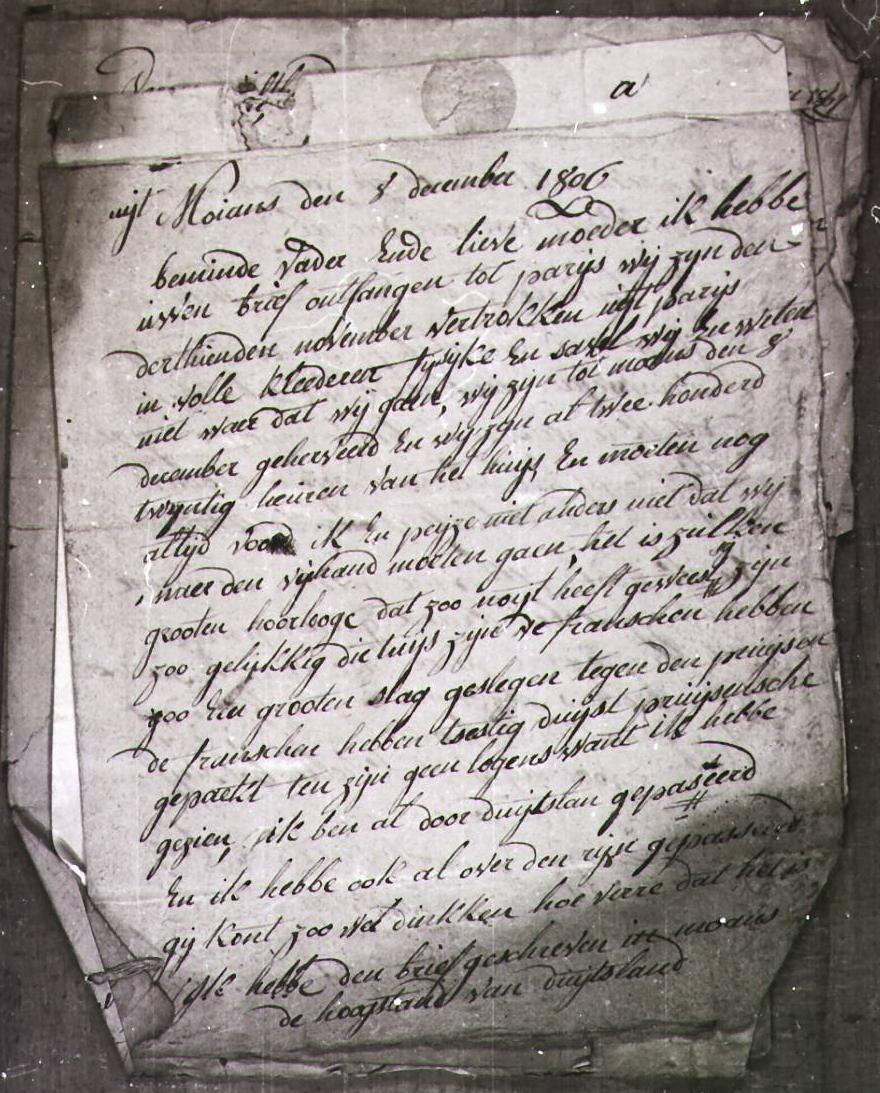 a
uijt Moians den 8 december 1806
beminde vader Ende lieve moeder ik hebbe
uwen brief ontfangen tot parijs wij zijn den
derthienden november vertrokken uijt parijs
in volle kleederen En wij En weten
niet waer dat wij gaen, wij zijn tot moans den 8
december gehariveerd En wij zijn al twee honderd
twijntig heuren van het huijs En moeten nog
altijd ik En peijze niet anders niet dat wij
naer den vijhand moeten gaen, het is zulken
grooten hoorlooge dat zoo noijt heeft geweest zijn
zoo gelukkig die tuijs zijn de franschen hebben
zoo Eene grooten slag geslegen tegen den pruijsen
de franschen hebben tsestig duijst pruijsensche
gepackt ten zijn geen logens want ik hebbe
gezien, ik ben al door duijtslan gepaseerd
En ik hebbe ook al over den rijn gepasseerd
gij kont zoo wel dinkken hoe verre dat het is
Ik hebbe den brief geschreven in moans
de hoofstand van duijtsland